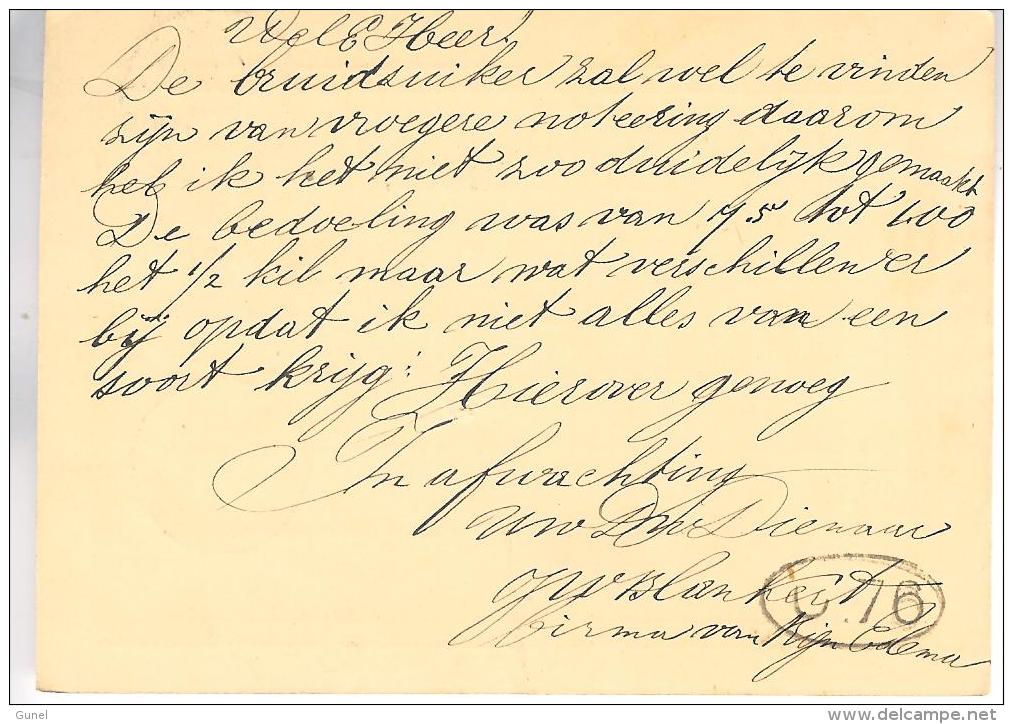 Wel E Heer!
De bruidsuiker zal wel te vinden
zijn van vroegere noteering daarom
heb ik het niet zoo duidelijk gemaakt
De bedoeling was van 75 tot 100
het 1/2 kil maar wat verschillen er
bij opdat ik niet alles van een
soort krijg: Hierover genoeg
In afwachting
Uw Dw Dienaar
Blankert
Firma van Rijn
C.76
Gunel
delcampe.net